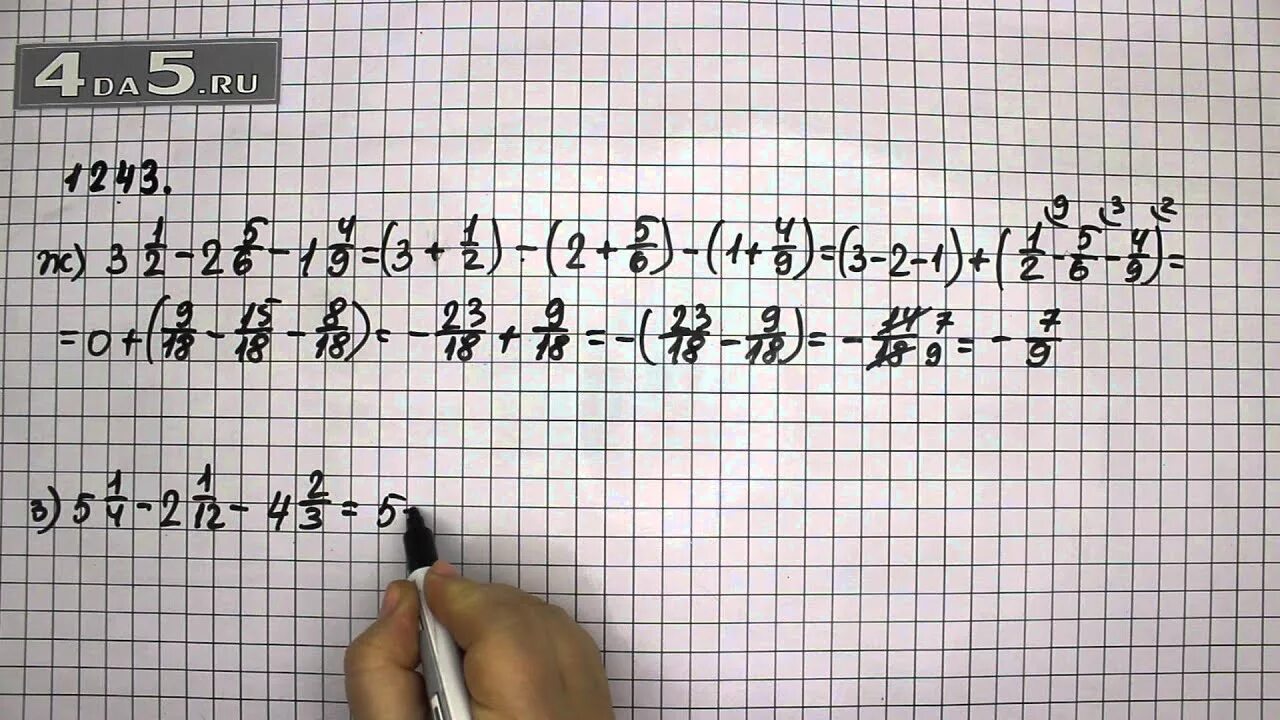 4DA5.RU
1243.
ж) 3 1/2 - 2 5/6 - 1 4/9 = (3 + 1/2) - (2 + 5/6) - (1 + 4/9) = (3 - 2 - 1) + (1/2 ⁹ - 5/6 ³ - 4/9 ²) =
= 0 + (9/18 - 15/18 - 8/18) = - 23/18 + 9/18 = - (23/18 - 9/18) = - 14/18 7/9 = - 7/9
з) 5 1/4 - 2 1/12 - 4 2/3 = 5